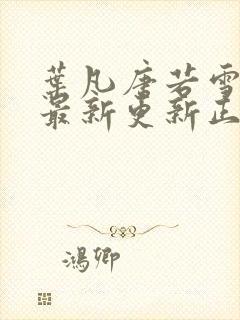 葉凡唐若雪
最新更新正
鴻卿